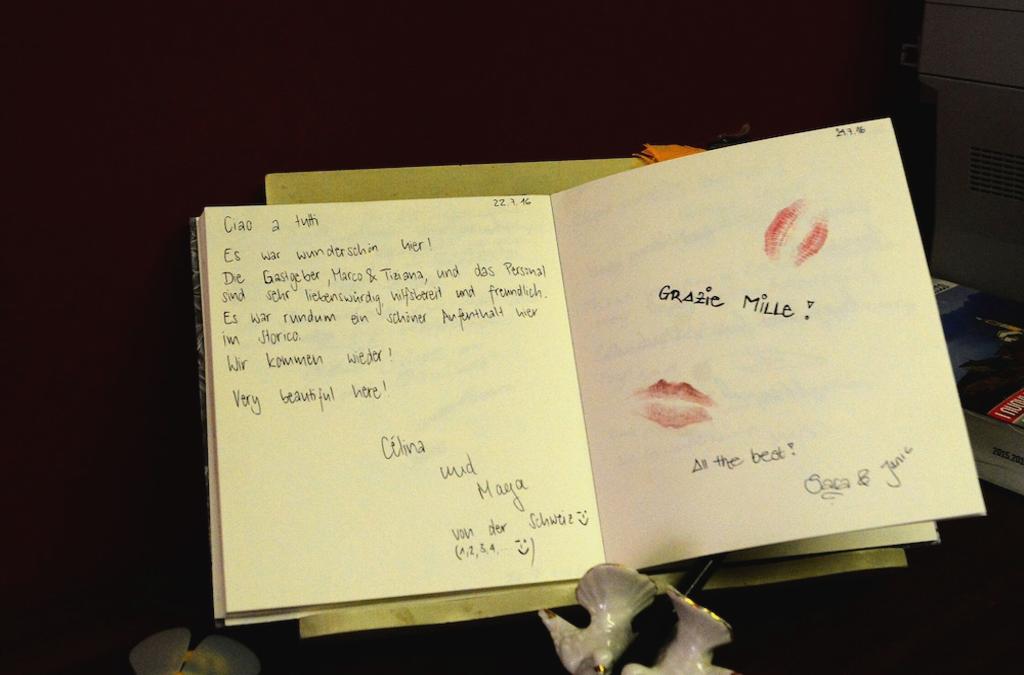 22.7.16
Ciao a tutti
Es war wunderschön hier!
Die Gastgeber, Marco & Tiziana, und das Personal
sind sehr liebenswürdig, hilfsbereit und freundlich.
Es war rundum ein schöner Aufenthalt hier
im Storico.
Wir kommen wieder!
Very beautiful here!
Célina
und
Maya
von der Schweiz
(1,2,3,4,...)
GRAZIE MILLE!
All the best!
Sara &
2015.201